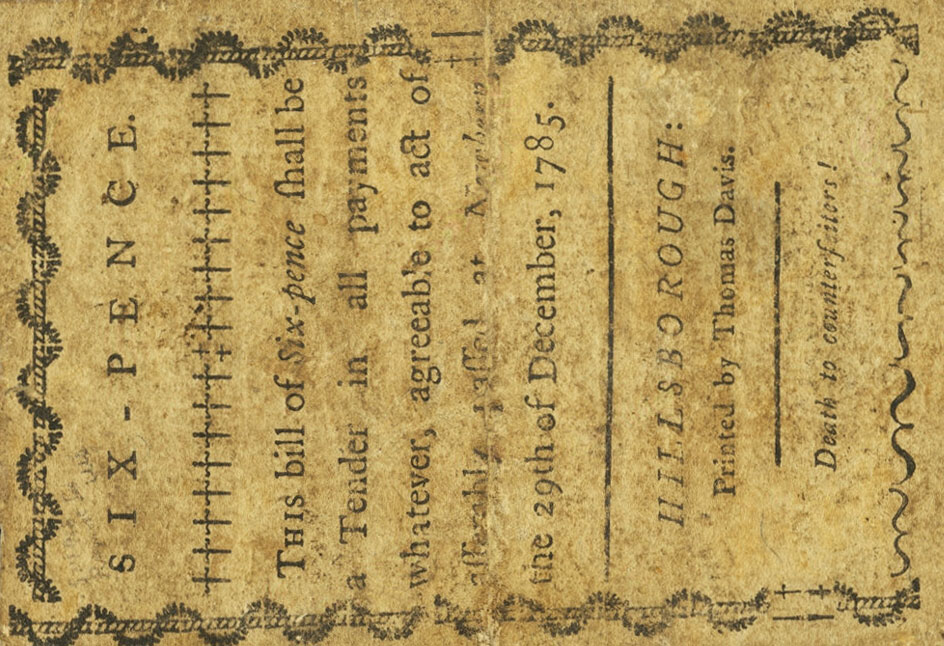 SIX-PENCE.
THIS bill of Six-pence ſhall be
a Tender in all payments
whatever, agreeable to act of
aſſembly paſſed at Newbern
the 29th of December, 1785.
HILLSBOROUGH:
Printed by Thomas Davis.
Death to counterfeitors!